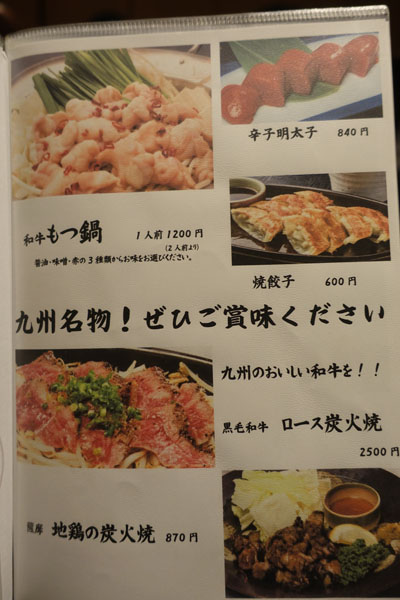 辛子明太子 840円
和牛もつ鍋 1人前1200円
(2人前より)
醤油・味噌・赤の3種類からお味をお選びください。
焼餃子 600円
九州名物!ぜひご賞味ください
九州のおいしい和牛を!!
黒毛和牛 ロース炭火焼
2500円
地鶏の炭火焼 870円